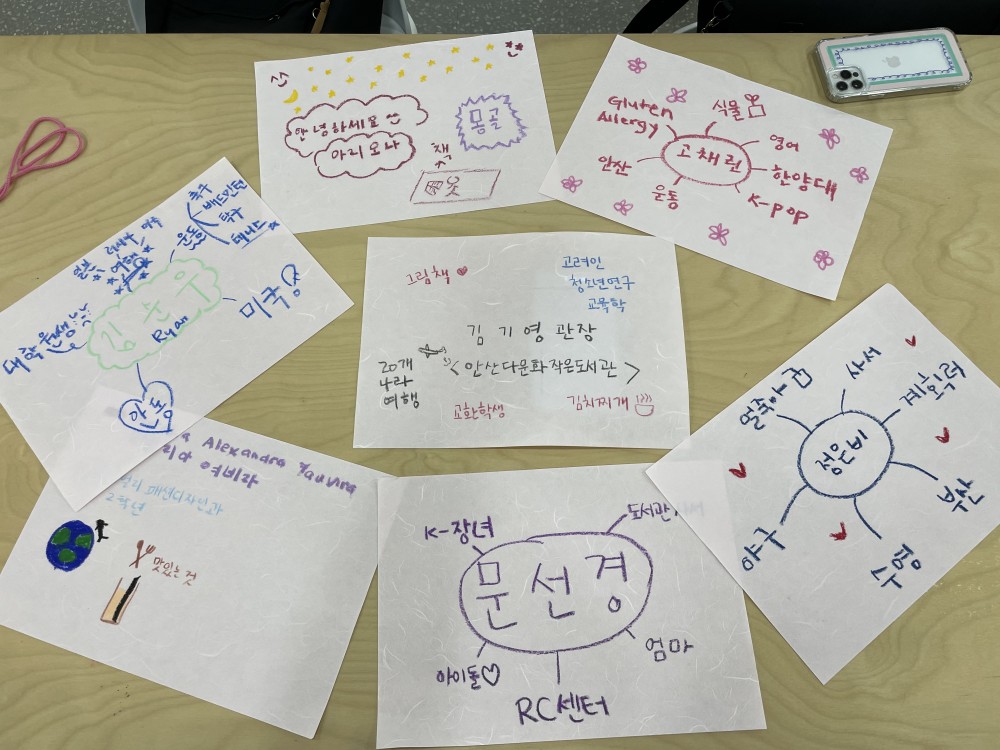 안녕하세요
아리오나
몽골
책
Gluten
Allergy
식물
영어
한양대
K-pop
운동
안산
고채린
축구
배드민턴
탁구
테니스
운동
여행
미국
대학원생
김순우
Ryan
안동
그림책
고려인
청소년연구
교육학
김기영관장
<안산다문화작은도서관>
20개
나라
여행
교환학생
김치찌개
Alexandra
여비라
패션디자인과
2학년
맛있는 것
K-장녀
도서관
문선경
아이돌
엄마
RC센터
얼죽아
사서
계획력
정은비
부산
야구